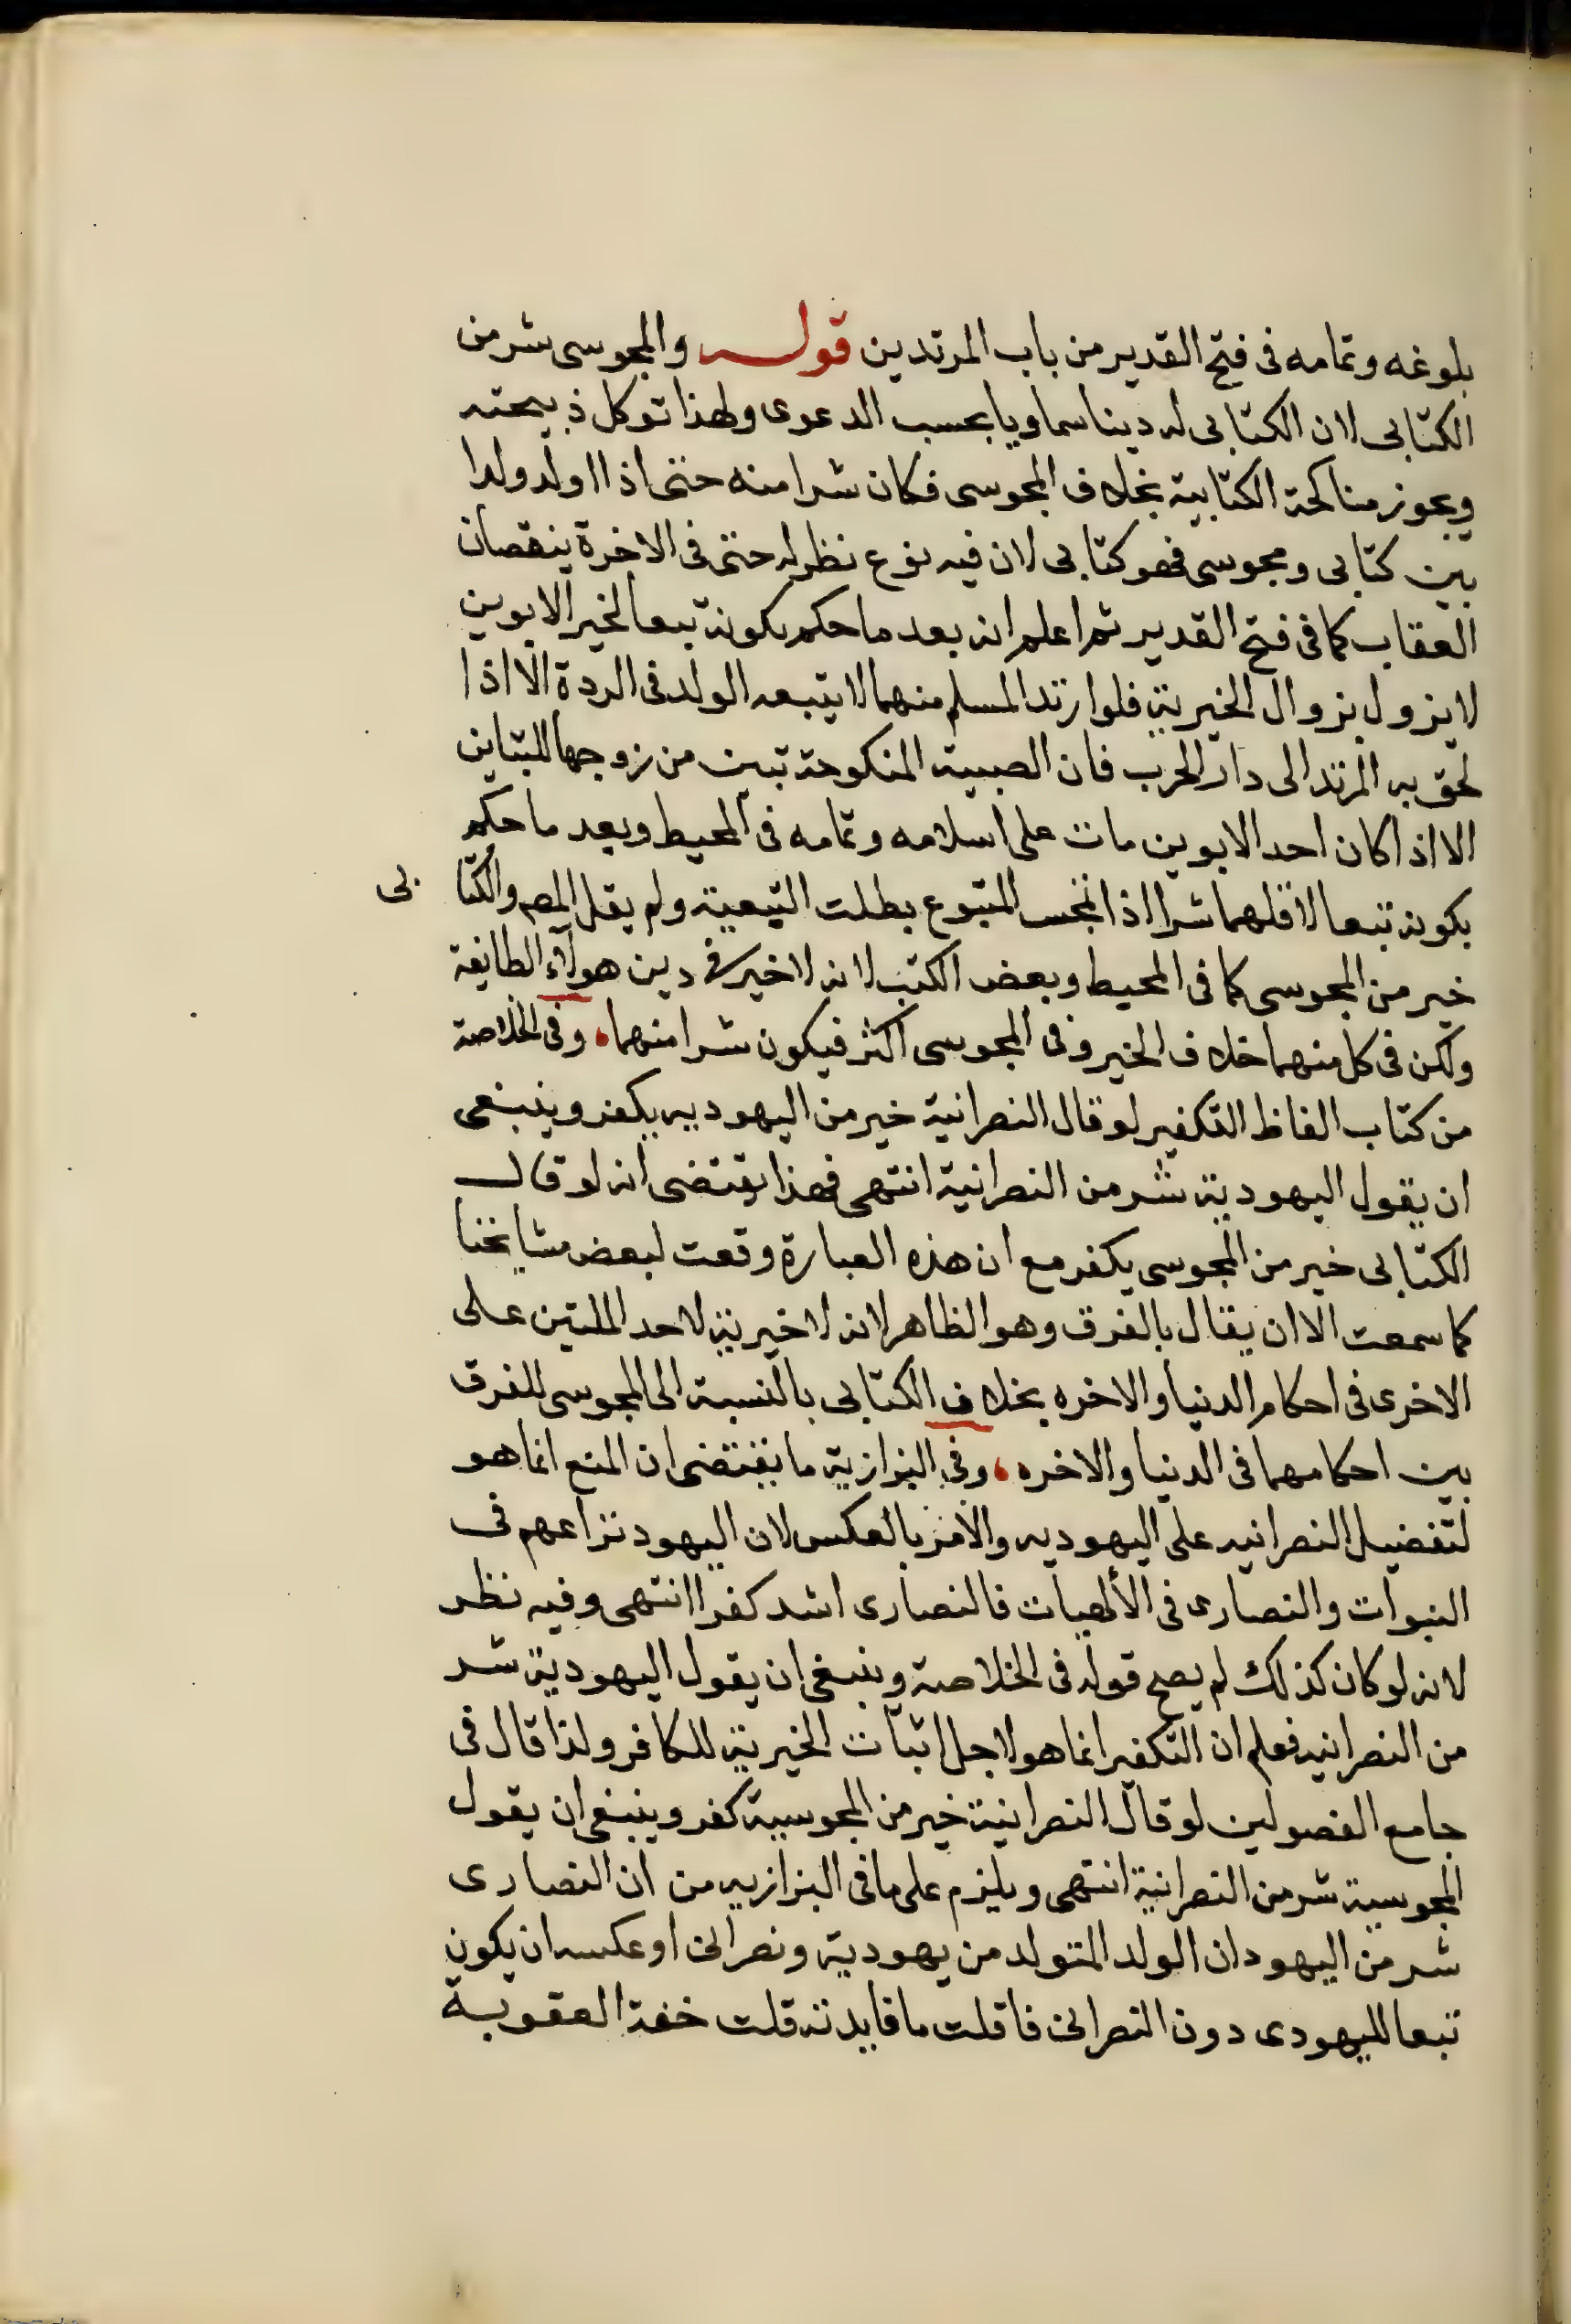 بلوغه وتمامه فى فتح القدير من باب المرتدين قولـــه والمجوسى شر من
الكتابى لان الكتابى له دينا سماويا بحسب الدعوى ولهذا توكل ذبيحته
ويجوز مناكحة الكتابية بخلاف المجوسى فكان شرا منه حتى اذا اولد ولدا
بين كتابى ومجوسى فهو كتابى لان فيه نوع نظر له حتى فى الاخرة ينقصان
العقاب كما فى فتح القدير ثم اعلم انه بعد ما حكم بكونه تبعا لخير الابوين
لا يزول بزوال الخيرية فلو ارتد المسلم منهما لا يتبعه الولد فى الردة الا اذا
لحق به المرتد الى دار الحرب فان الصبية المنكوحة تبين من زوجها للتباين
الا اذا كان احد الابوين مات على اسلامه وتمامه فى المحيط وبعد ما حكم
بكونه تبعا لاقلهما شرا اذا تمجس المتبوع بطلت التبعية ولم يقل المص والكتا بى
خير من المجوسى كما فى المحيط وبعض الكتب لانه لا خير فى دين هولاء الطايفة
ولكن فى كل منهما خلاف الخير وفى المجوسى اكثر فيكون شرا منهما، وفى الخلاصة
من كتاب الفاظ التكفير لو قال النصرانية خير من اليهوديه يكفر وينبغى
ان يقول اليهودية شر من النصرانية انتهى فهذا يقتضى انه لو قال
الكتابى خير من المجوسى يكفر مع ان هذه العبارة وقعت لبعض مشايخنا
كما سمعت الا ان يقال بالفرق وهو الظاهر لانه لا خيرية لاحد الملتين على
الاخرى فى احكام الدنيا والاخره بخلاف الكتابى بالنسبة الى المجوسى للفرق
بين احكامهما فى الدنيا والاخره، وفى البزازية ما يقتضى ان المنع انما هو
لتفضيل النصرانيه على اليهوديه والامر بالعكس لان اليهود نزاعهم فى
النبوات والنصارى فى الألهيات فالنصارى اشد كفرا انتهى وفيه نظر
لانه لو كان كذلك لم يصح قوله فى الخلاصة وينبغى ان يقول اليهودية شر
من النصرانيه فعلم ان التكفير انما هو لاجل اثبات الخيرية للكافر ولذا قال فى
جامع الفصولين لو قال النصرانية خير من المجوسية كفر وينبغى ان يقول
المجوسية شر من النصرانية انتهى ويلزم على ما فى البزازيه من ان النصارى
شر من اليهود ان الولد المتولد من يهودية ونصرانى او عكسه ان يكون
تبعا لليهودى دون النصرانى فا قلت ما فايدته قلت خفة العقوبة